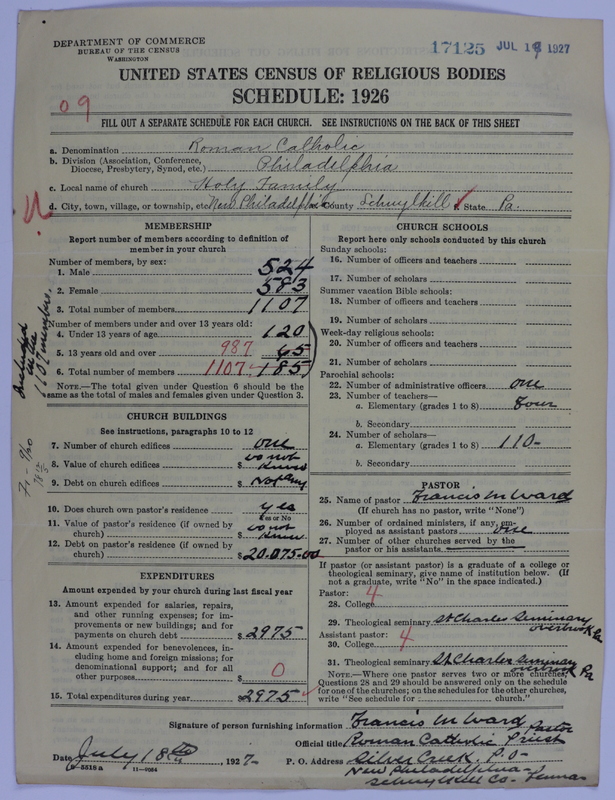 DEPARTMENT OF COMMERCE
BUREAU OF THE CENSUS
WASHINGTON
17125 JUL 19 1927
UNITED STATES CENSUS OF RELIGIOUS BODIES
SCHEDULE: 1926
09
FILL OUT A SEPARATE SCHEDULE FOR EACH CHURCH. SEE INSTRUCTIONS ON THE BACK OF THIS SHEET
a. Denomination Roman Catholic
b. Division (Association, Conference, Diocese, Presbytery, Synod, etc.) Philadelphia
c. Local name of church Holy Family
d. City, town, village, or township, etc. New Philadelphia County Schuylkill State Pa.
MEMBERSHIP
Report number of members according to definition of member in your church
Number of members, by sex:
1. Male 524
2. Female 583
3. Total number of members 1107
Number of members under and over 13 years old:
4. Under 13 years of age 120
5. 13 years old and over 987 65
6. Total number of members 1107 185
Included in the 1107 members.
NOTE.—The total given under Question 6 should be same as the total of males and females given under Question 3.
CHURCH BUILDINGS
See instructions, paragraphs 10 to 12
7. Number of church edifices one
8. Value of church edifices $ do not know
9. Debt on church edifices $
10. Does church own pastor's residence? yes
Yes or No
11. Value of pastor's residence (if owned by church) $ do not know
12. Debt on pastor's residence (if owned by church) $ 20.075.00
EXPENDITURES
Amount expended by your church during last fiscal year
13. Amount expended for salaries, repairs, and other running expenses; for improvements or new buildings; and for payments on church debt $ 2975
14. Amount expended for benevolences, including home and foreign missions; for denominational support; and for all other purposes $ 0
15. Total expenditures during year $ 2975
CHURCH SCHOOLS
Report here only schools conducted by this church
Sunday schools:
16. Number of officers and teachers
17. Number of scholars
Summer vacation Bible schools:
18. Number of officers and teachers
19. Number of scholars
Week-day religious schools:
20. Number of officers and teachers
21. Number of scholars
Parochial schools:
22. Number of administrative officers one
23. Number of teachers—
a. Elementary (grades 1 to 8) Four
b. Secondary
24. Number of scholars—
a. Elementary (grades 1 to 8) 110-
b. Secondary
PASTOR
25. Name of pastor Francis M Ward
(If church has no pastor, write "None")
26. Number of ordained ministers, if any, employed as assistant pastors one
27. Number of other churches served by the pastor or his assistants
If pastor (or assistant pastor) is a graduate of a college or theological seminary, give name of institution below. (If not a graduate, write "No" in the space indicated.)
Pastor:
28. College 4
29. Theological seminary St Charles Seminary Overbrook Pa
Assistant pastor:
30. College 4
31. Theological seminary St Charles Seminary Overbrook Pa
NOTE.—Where one pastor serves two or more churches, Questions 28 and 29 should be answered only on the schedule for one of the churches; on the schedules for the other churches, write "See schedule for church."
Signature of person furnishing information Francis M Ward Pastor
Official title Roman Catholic Priest
Date July 18th, 1927- P. O. Address Silver Creek P.O-
New Philadelphia-
Schuylkill Co- Penna
8-5518 a 11-9064